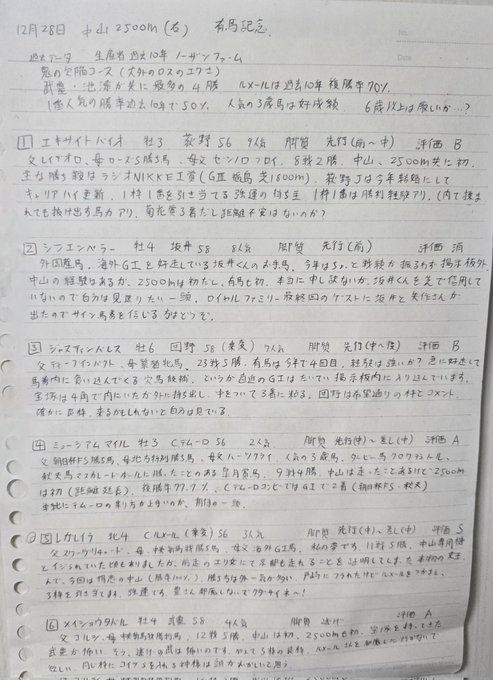 12月28日 中山2500m(右) 有馬記念
No.
Date
過去データ 生産者 過去10年 ノーザンファーム
魔の欠陥コース (大外のロスのエグさ)
武豊・池添が共に最多の4勝 ルメールは過去10年 複勝率70%
1番人気の勝率 過去10年で50% 人気の3歳馬は好成績 6歳以上は厳しいか…?
1 エキサイトバイオ 牡3 荻野 56 9人気 脚質 先行(前〜中) 評価 B
父レイデオロ、母 5勝馬、母父 8戦2勝、中山、2500m共に初、
主な勝ち鞍はラジオNIKKEI賞(GⅢ福島芝1800m) 荻野Jは今年結婚にして
キャリアハイ更新、1枠1番を引き当てる強運の持ち主 1枠1番は勝利経験アリ。(内で揉ま
れても抜け出す馬力アリ、菊花賞3着だし距離不安はないのか?
2 シンエンペラー 牡4 坂井 58 8人気 脚質 先行(前) 評価 消
外国産馬、海外GⅠを好走している坂井くんのお手馬。今年はちょっと戦績が振るわず掲示板外、
中山の経験はあるが、2500mは初だし、有馬も初、本当に申し訳ないが、坂井くんを芝で信用して
いないので自分は見送りたい一頭、ロイヤルファミリー最終回のゲストに坂井と矢作さんが
出たのでサイン馬券を信じる方はどうぞ。
3 ジャスティンパレス 牡6 団野 58 (乗変) 7人気 脚質 先行(中〜後) 評価 B
父ディープインパクト、母 牝馬、23戦5勝、有馬は今年で4回目、経験は強いか? 急に好走して
馬券内に食い込んでくる穴馬候補、というか直近のGⅠはだいたい掲示板内に入り込んでいます。
宝塚は4角で内にいたが外に持ち出し、中をついて3着に粘る、団野は希望通りの枠とコメント、
確かに良枠、来るかもしれないと自分は見ている。
4 ミュージアムマイル 牡3 C.デムーロ 56 2人気 脚質 先行(中)〜差し(中) 評価 A
父 朝日杯FS勝ち馬、母 特別勝ち馬、母父ハーツクライ、人気の3歳馬、ダービー馬クロワデュノール、
秋天馬マスカレードボールに勝ったことのある皐月賞馬、9戦4勝、中山は走ったことあるけど2500m
は初(距離延長)、複勝率77.7%、C.デムーロコンビではGⅠで2着(朝日杯FS・秋天)
単純にデムーロの乗り方が上手いのか、期待の一頭、
5 レガレイラ 牝4 C.ルメール (乗変) 56 3人気 脚質 先行(中)〜差し(中) 評価 S
父スワーヴリチャード、母 勝ち馬、母父 海外GⅠ馬、私の夢です、11戦5勝、中山専用機
とイジられていた頃もありましたが、前走のエリ女にて京都も走れることを証明してしまった本物の女王
んで、今回は得意の中山
戸崎にフラれたけどルメールをつかまえ、
3枠を引き当てます、強運です、豊さん邪魔しないで
6 メイショウタバル 牡4 武豊 58 4人気 脚質 逃げ 評価 A
父ゴルシ、母 12戦5勝、中山は初、2500mも初、宝塚を持ってきた
武豊が怖い、そう、逃げの武は怖いのです、加えて3枠の良枠、ルメールさんを邪魔しに行かないで
欲しい、